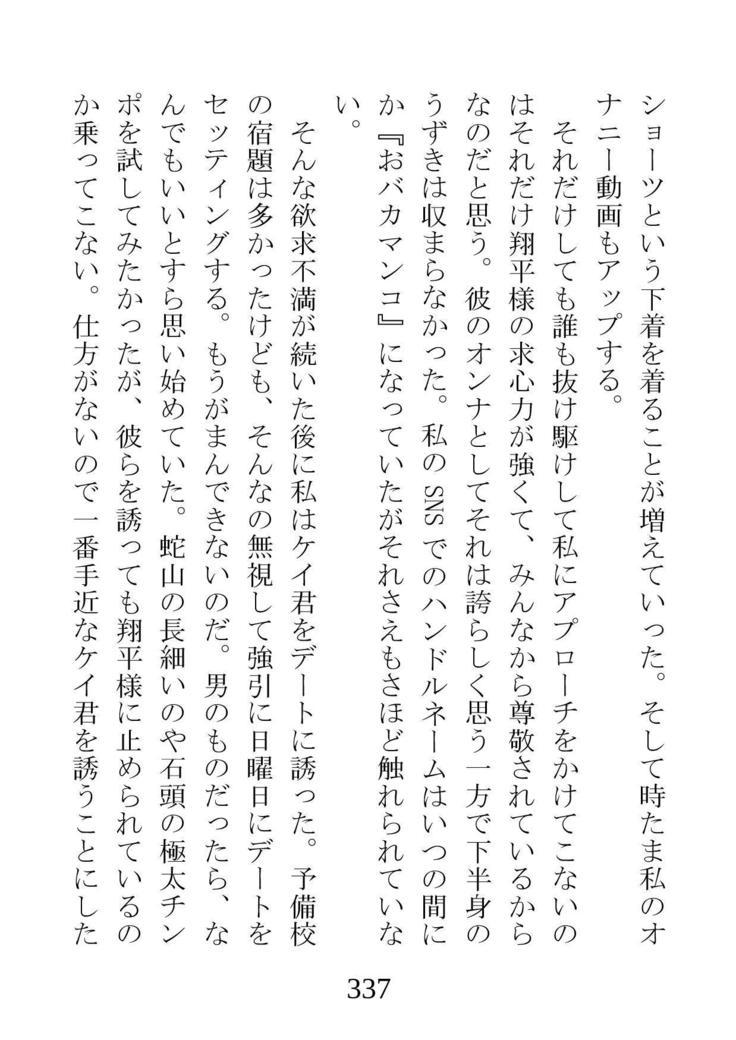 ショーツという下着を着ることが増えていった。そして時たま私のオ
ナニー動画もアップする。
それだけしても誰も抜け駆けして私にアプローチをかけてこないの
はそれだけ翔平様の求心力が強くて、みんなから尊敬されているから
なのだと思う。彼のオンナとしてそれは誇らしく思う一方で下半身の
うずきは収まらなかった。私の SNS でのハンドルネームはいつの間に
か『おバカマンコ』になっていたがそれさえもさほど触れられていな
い。
そんな欲求不満が続いた後に私はケイ君をデートに誘った。予備校
の宿題は多かったけども、そんなの無視して強引に日曜日にデートを
セッティングする。もうがまんできないのだ。男のものだったら、な
んでもいいとすら思い始めていた。蛇山の長細いのや石頭の極太チン
ポを試してみたかったが、彼らを誘っても翔平様に止められているの
か乗ってこない。仕方がないので一番手近なケイ君を誘うことにした
337